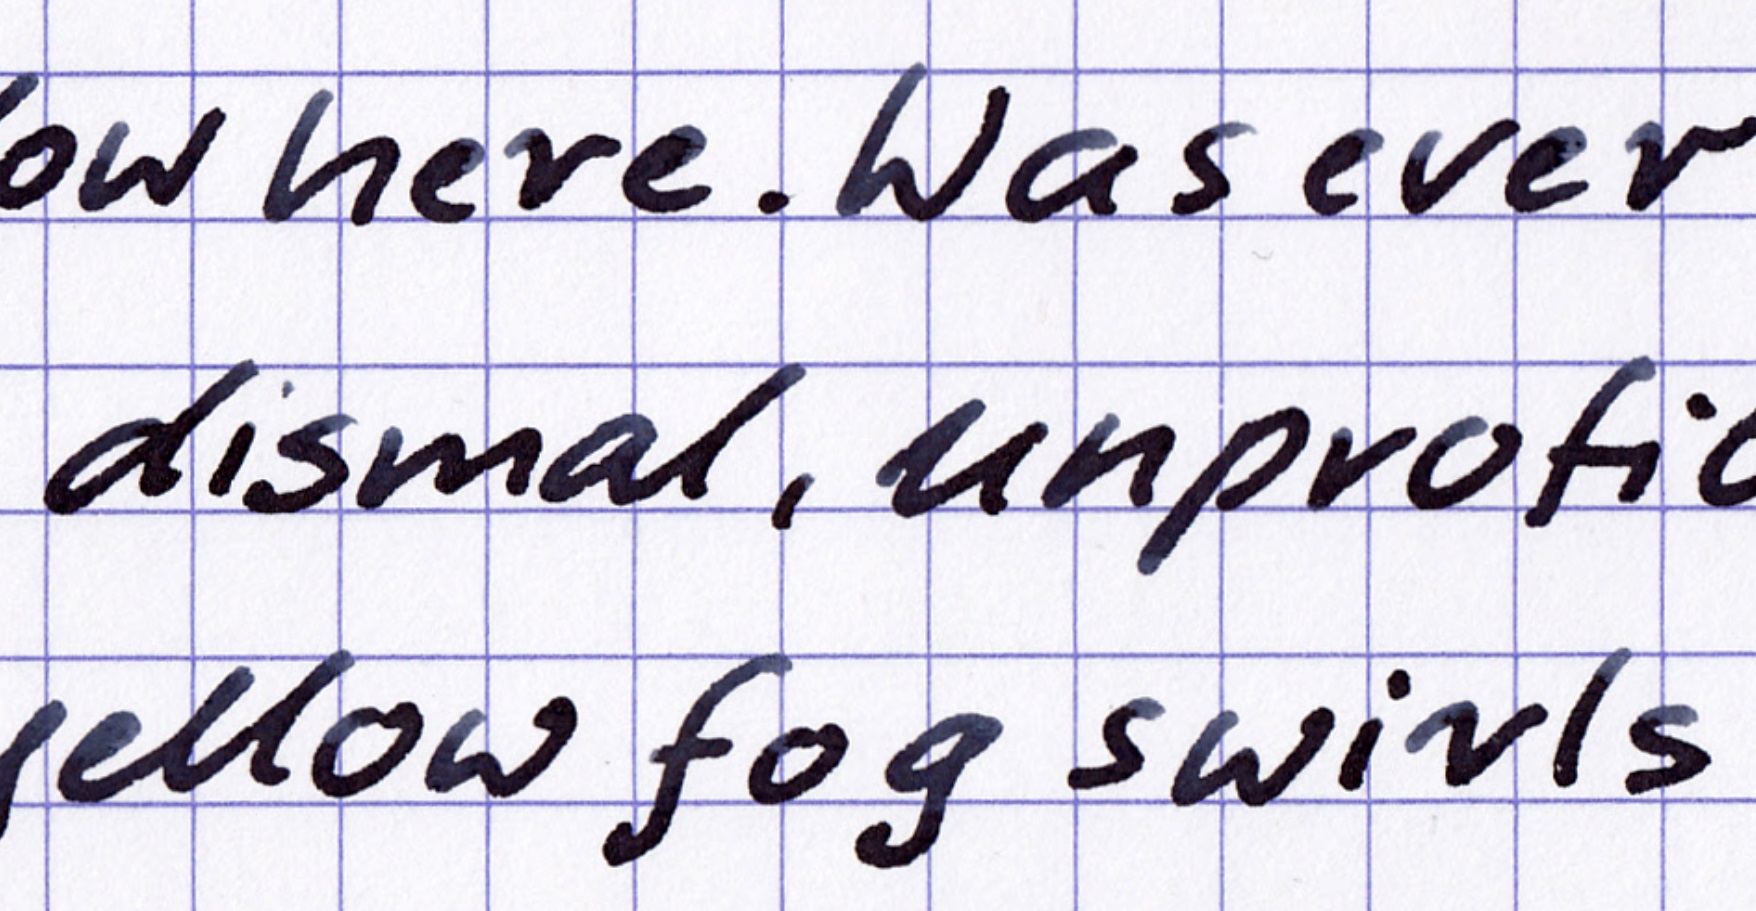 ow here. Was ever
dismal, unprofi
yellow fog swirls